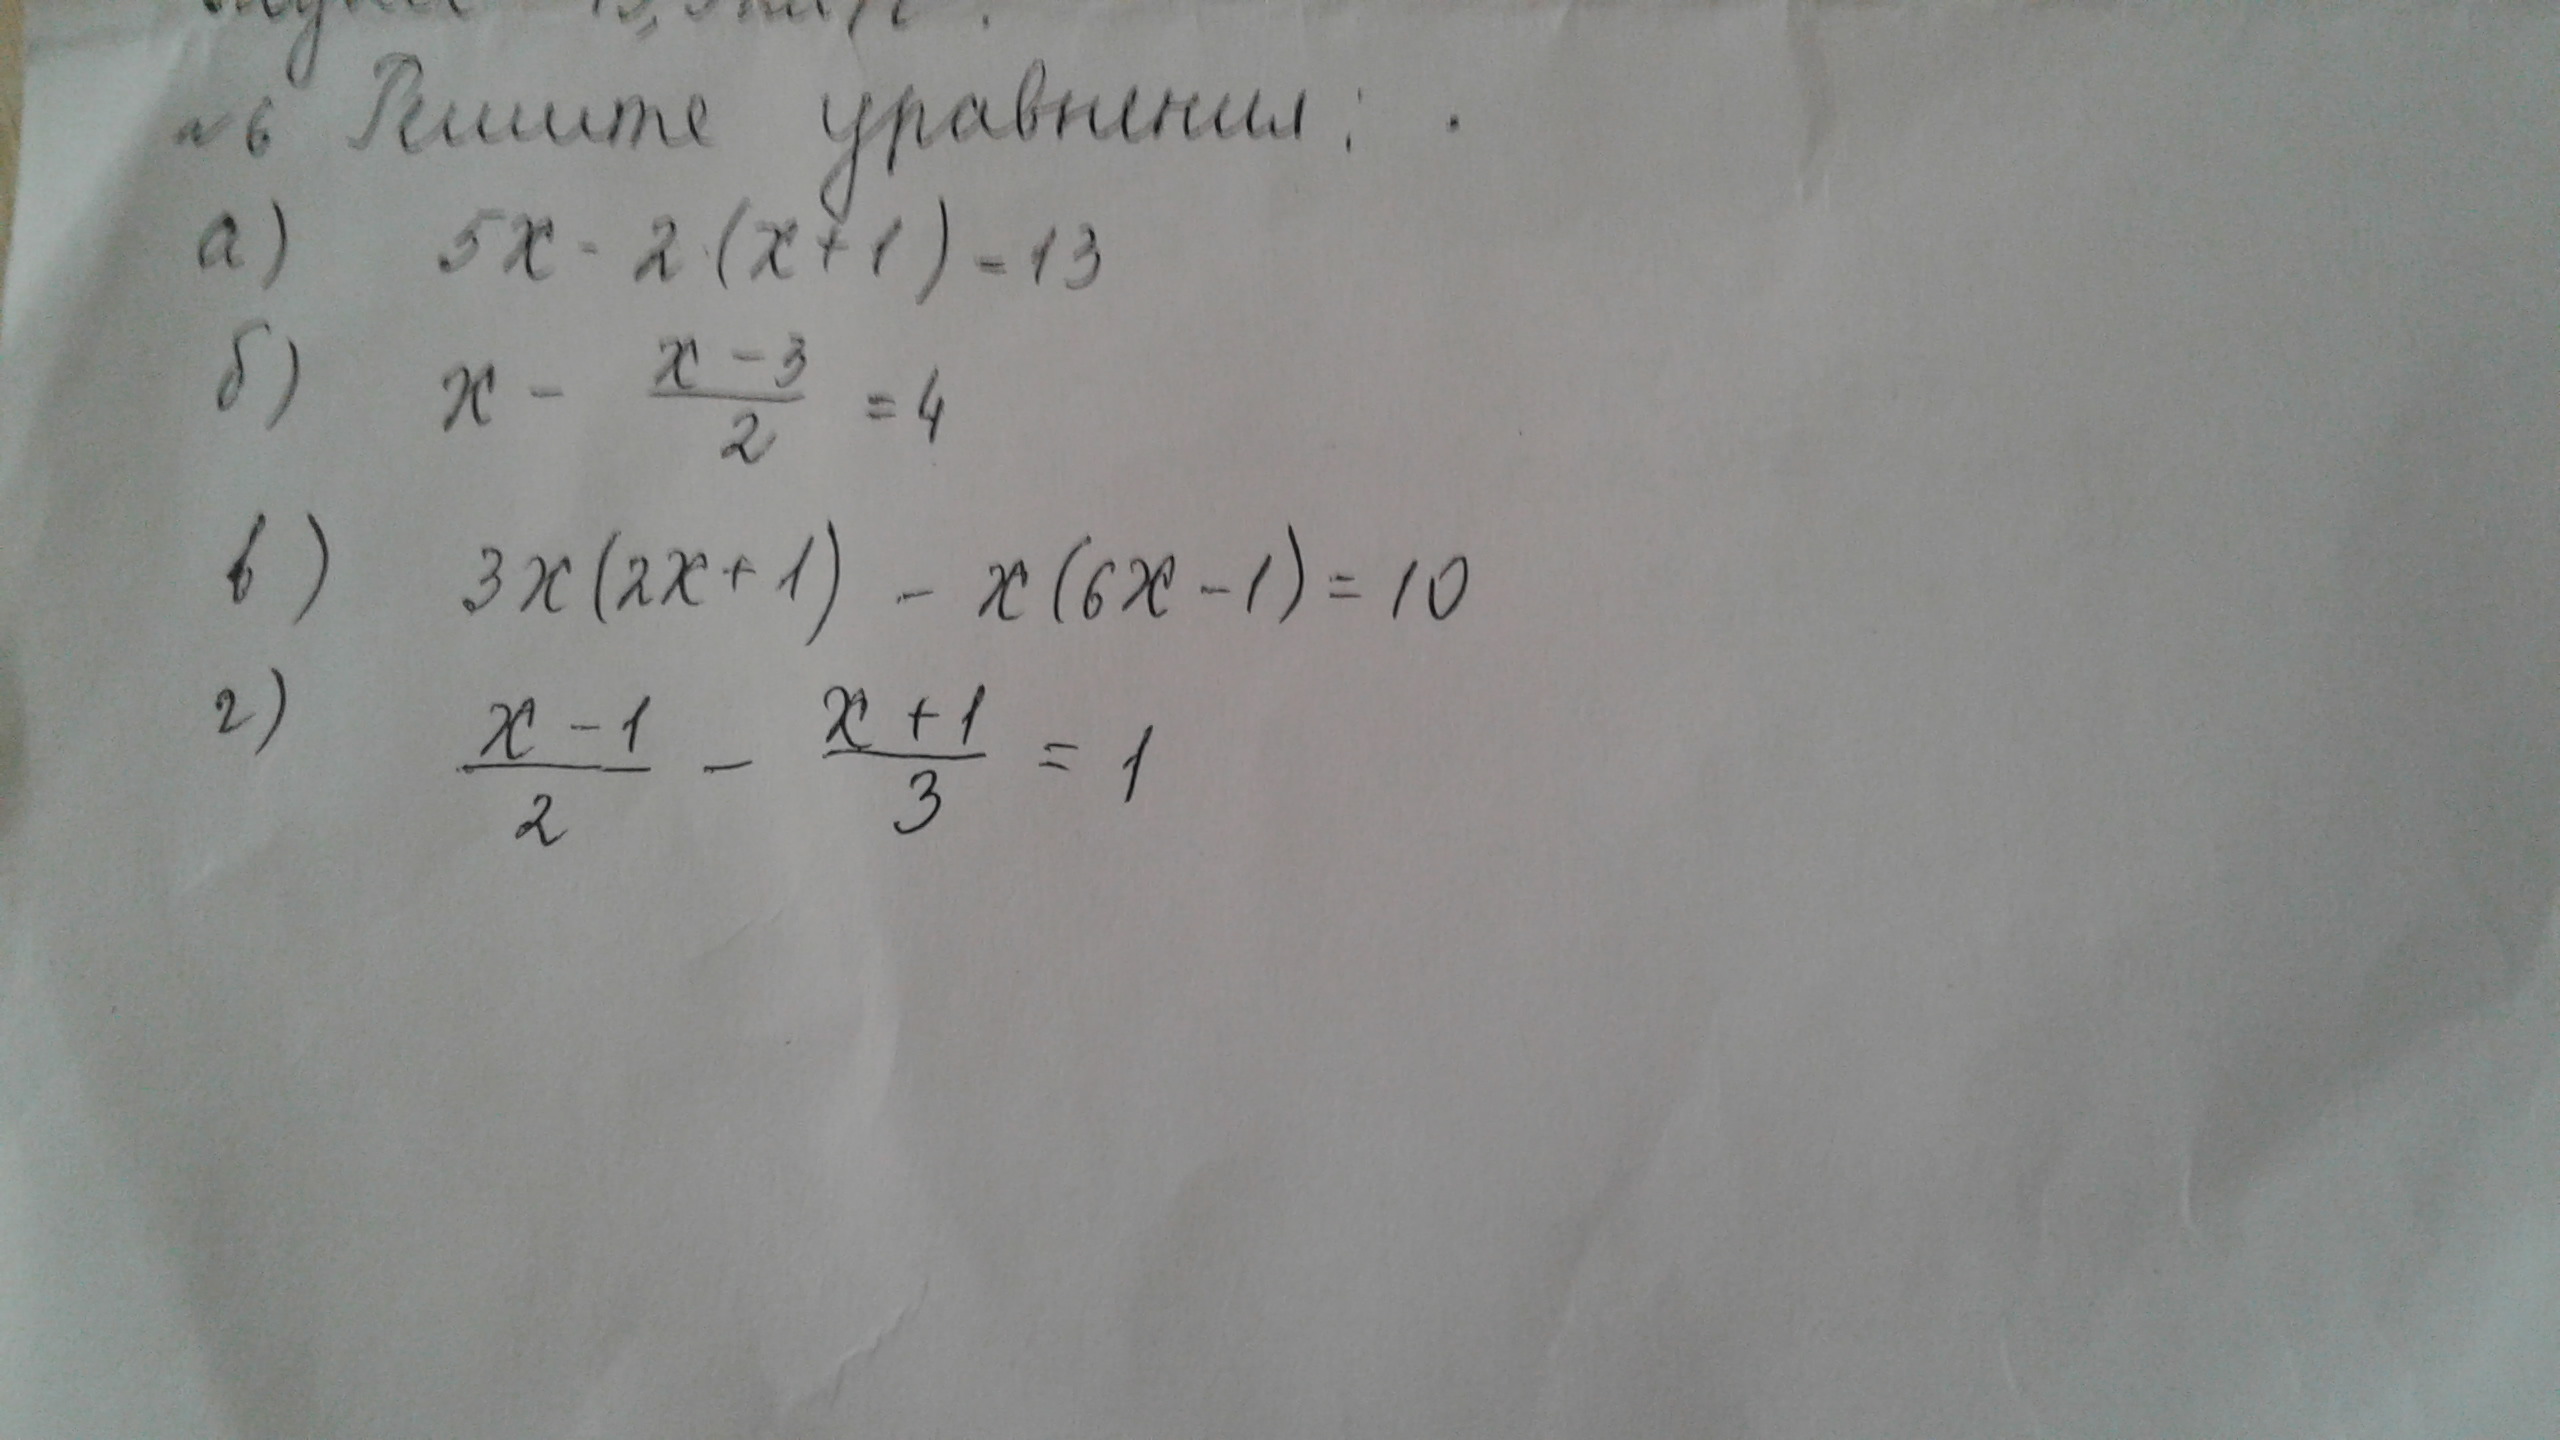 №6 Решите уравнения:
а) 5x - 2(x+1) = 13
б) x - (x-3)/2 = 4
в) 3x(2x+1) - x(6x-1) = 10
г) (x-1)/2 - (x+1)/3 = 1